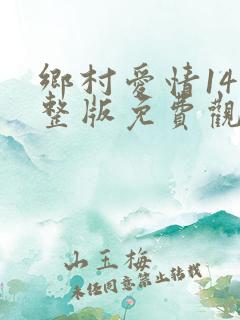 鄉村愛情14
整版免費觀
山玉梅
未经同意禁止转载